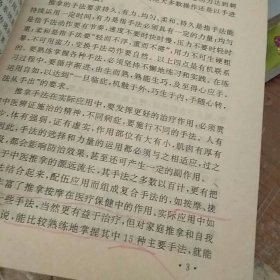 推拿手法要求持久、有力、均匀、柔和。持久是指手法能
持续运用一定时间，有力是指手法必须具有一定的力量，均匀
是指手法动作要有节奏，速度不要时快时慢，压力不要时轻时
重，柔和是指手法要“轻而不浮，重而不滞”，用力不可生硬粗
暴或用蛮力，变换手法动作要自然。以上四点是有机联系
的。要熟练掌握各种手法，必须经过不懈地练习和实践，在练
运用自如，以达到“一旦临症，机触于外，巧生于内，手随心转，
法从手出”的要求。
推拿手法在实际应用中，要发挥更好的治疗作用，必须贯
中医辨证施治的精神，不同病症，要施行不同的手法。人有
体有强弱，证有虚实，作用部位有大有小，肌肉有厚有
因此，手法的选择和力量的运用都必须与之相适应，过之
都会影响防治效果，甚至还可产生一定的副作用。
于中医推拿的源远流长，其手法之多数以百计，更有把
结合起来，配伍应用而组成复合手法的，如按摩、揉
丰富了推拿按摩在医疗保健中的作用。实际应用中如
些手法，当然更有益于治疗，但对家庭推拿和自我
说，能比较熟练地掌握其中15种主要手法，就能
· 3 ·